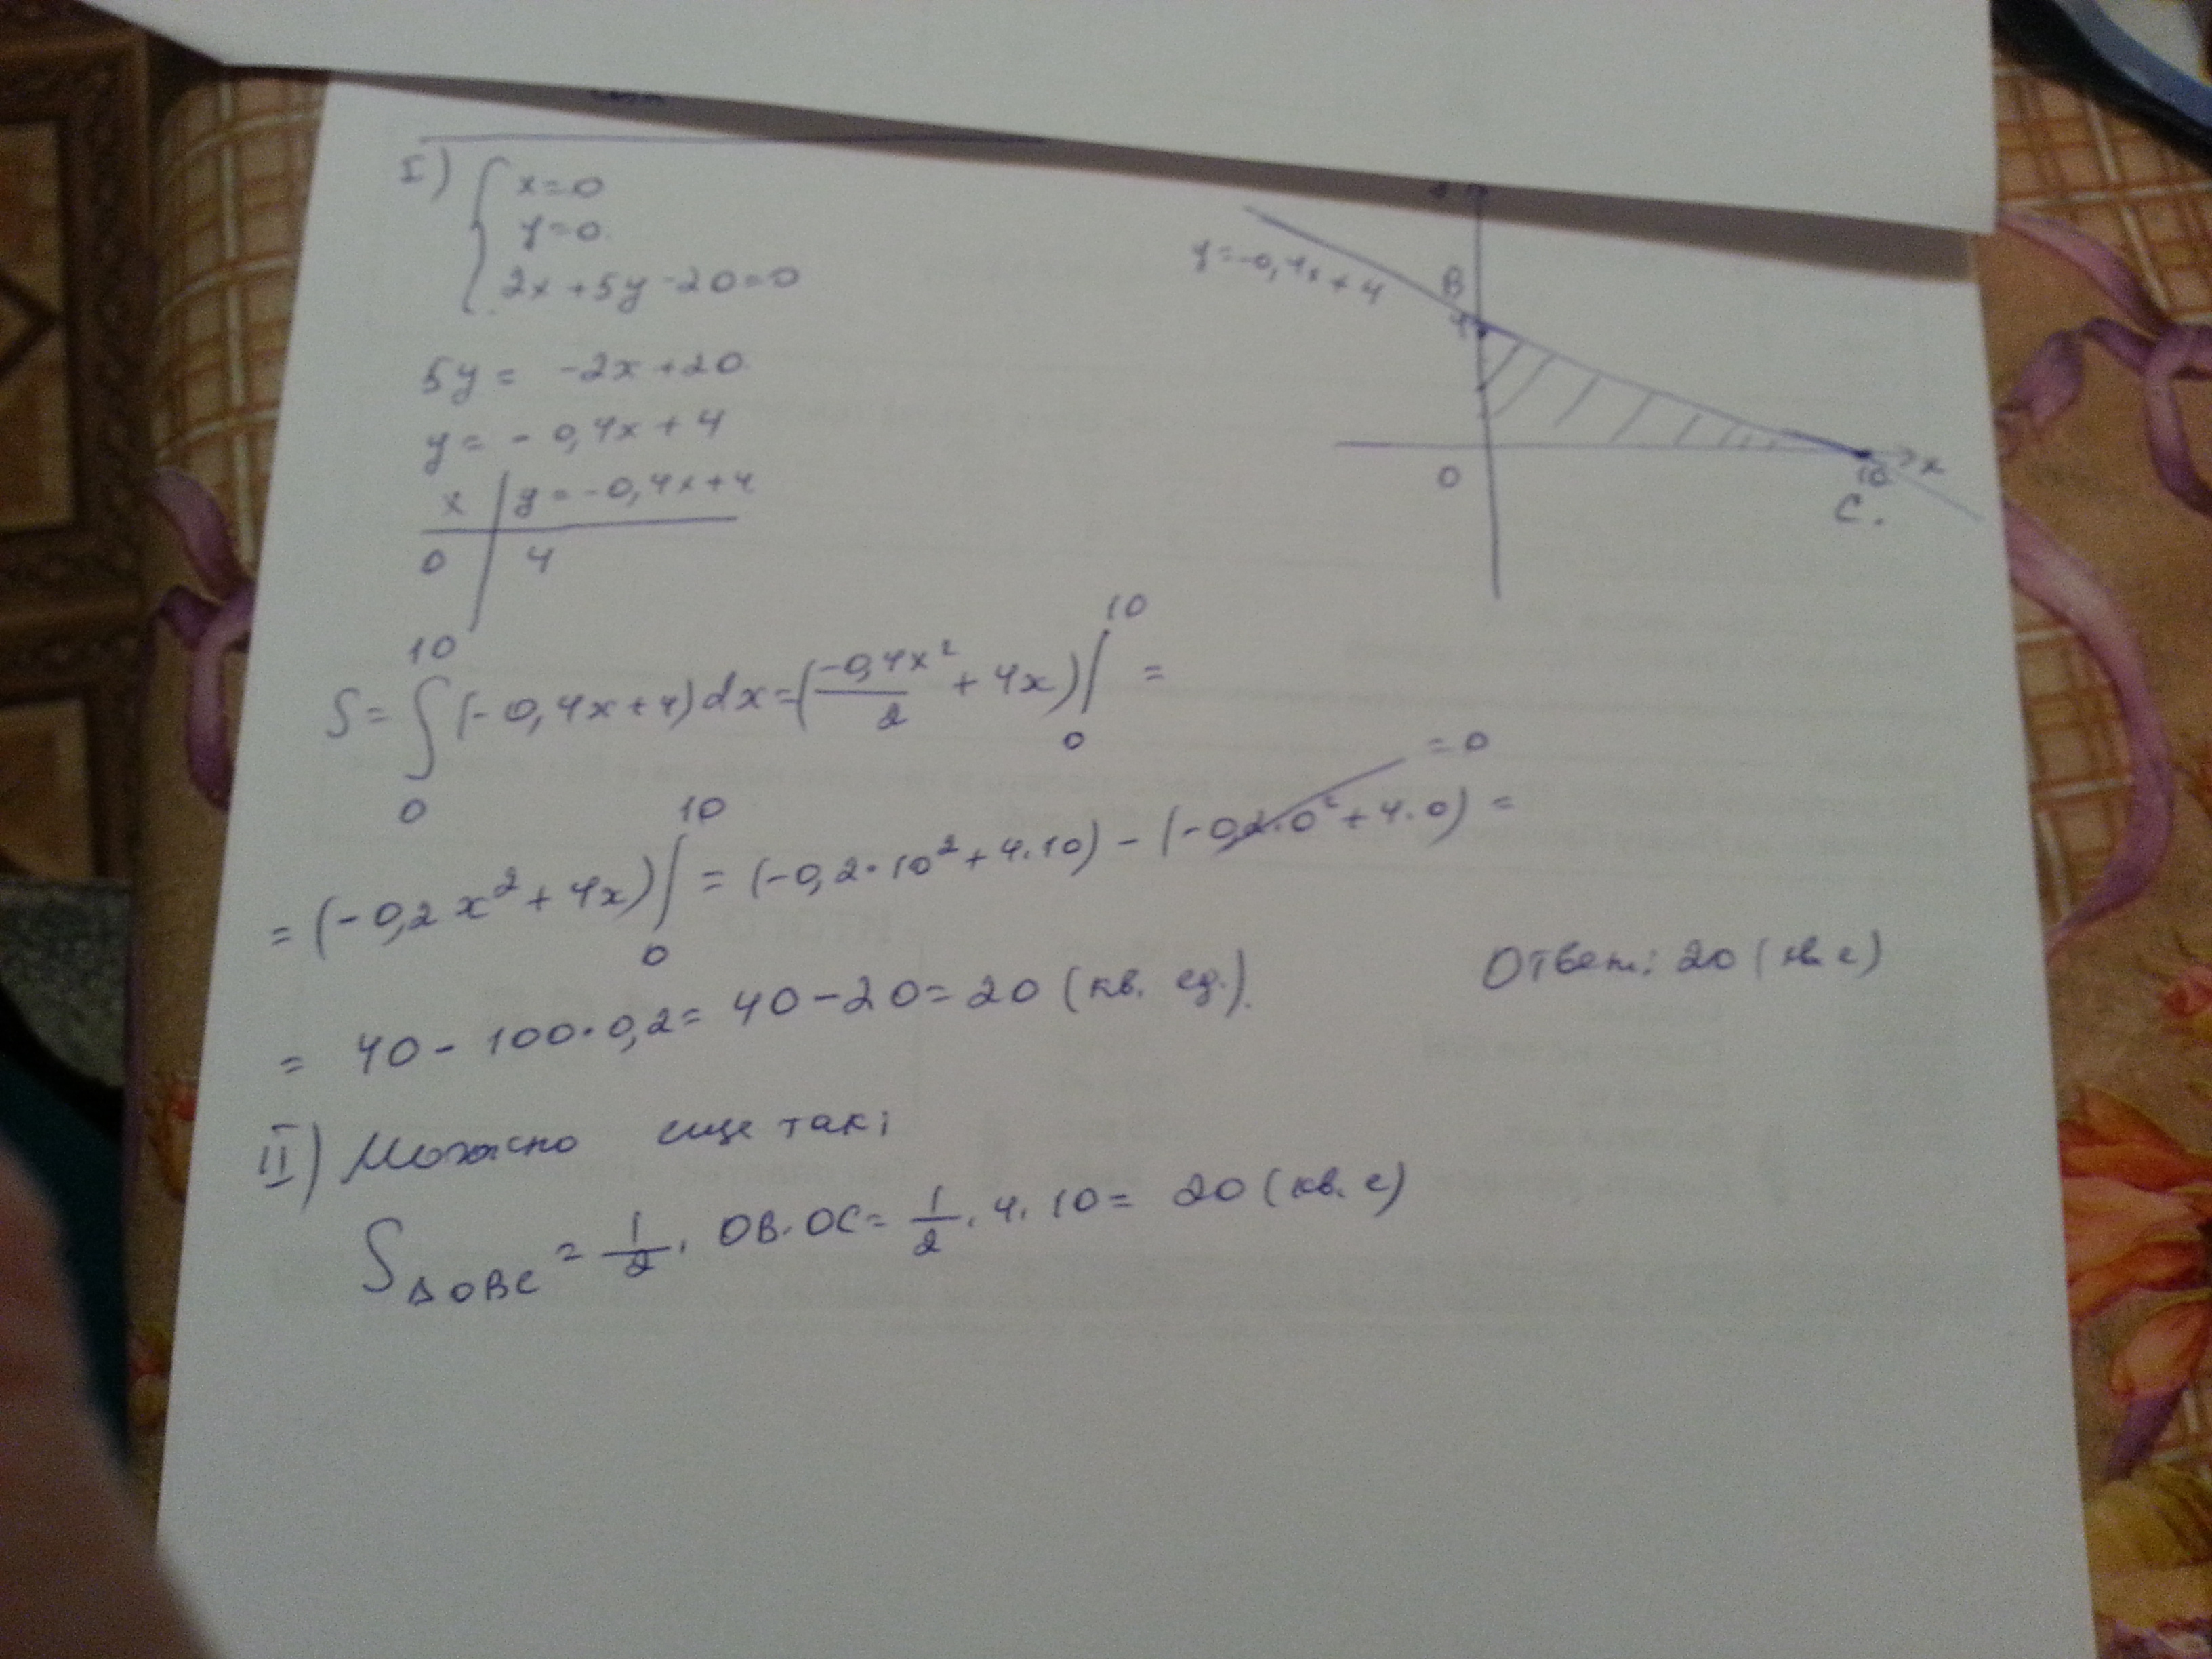 I) { x=0
y=0.
2x+5y-20=0
5y= -2x+20.
y= -0,4x+4
x | y=-0,4x+4
0 | 4
y=-0,4x+4
B
4
0
10
x
C.
S= ∫₀¹⁰ (-0,4x+4)dx=(-0,4x²/2 + 4x)|₀¹⁰ =
= (-0,2x²+4x)|₀¹⁰ = (-0,2·10²+4·10) - (-0,2·0²+4·0) =
=0
= 40-100·0,2= 40-20=20 (кв. ед.).
Ответ: 20 (кв. е)
II) Можно еще так:
S△OBC = 1/2 · OB·OC= 1/2 · 4 · 10= 20 (кв. е)